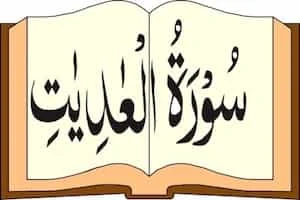 سُوْرَةُ الْعٰدِیٰتِ